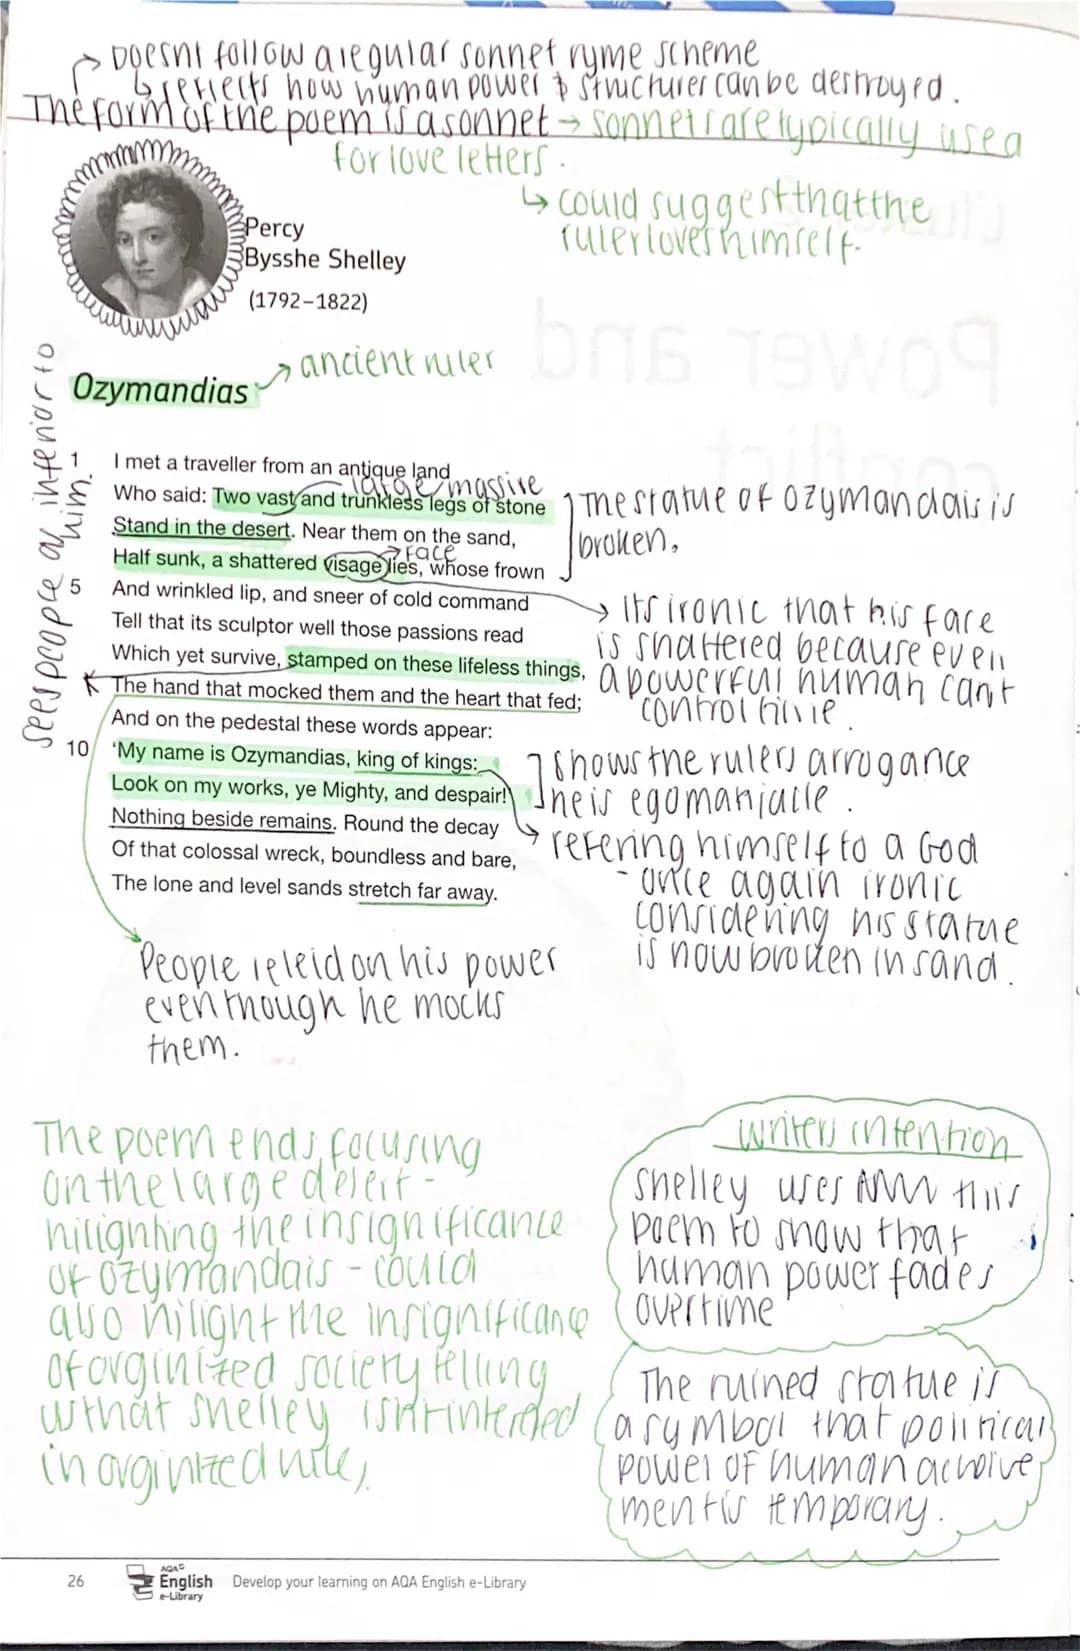 Doesnt follow a regular sonnet ryme scheme
↳ reflects how human power & structures can be destroyed.
The form of the poem is a sonnet → sonnets are typically used
for love letters.
↳ could suggest that the
ruler loves himself.
Percy
Bysshe Shelley
(1792–1822)
Ozymandias
→ ancient ruler
sees people as inferior to
him.
1 I met a traveller from an antique land
large/massive
Who said: Two vast and trunkless legs of stone
Stand in the desert. Near them on the sand,
→ Face
Half sunk, a shattered visage lies, whose frown
5 And wrinkled lip, and sneer of cold command
Tell that its sculptor well those passions read
Which yet survive, stamped on these lifeless things,
The hand that mocked them and the heart that fed;
And on the pedestal these words appear:
10 'My name is Ozymandias, king of kings:
Look on my works, ye Mighty, and despair!'
Nothing beside remains. Round the decay
Of that colossal wreck, boundless and bare,
The lone and level sands stretch far away.
The statue of Ozymandais is
broken.
→ Its ironic that his face
is shattered because even
a powerful human cant
control
shows the rulers arrogance
he is egomaniacle.
→ refering himself to a God
- once again ironic
considering his statue
is now broken in sand.
People releid on his power
even though he mocks
them.
The poem ends focusing
on the large desert -
hilighting the insignificance
of Ozymandais - could
also hilight the insignificance
of orginized society telling
us that Shelley isnt interested
in orginized
writers intention
Shelley uses this
poem to show that
human power fades
overtime
The ruined statue is
a symbol that political
power of human achoive
ment is temporary.
26
AQA
English
e-Library
Develop your learning on AQA English e-Library
Power and
conflict